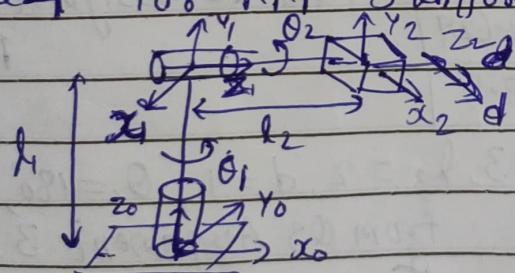 Y₁
θ₂
Y₂
Z₂
Z₁
d
X₁
l₂
X₂
d
l₁
θ₁
Z₀
Y₀
X₀